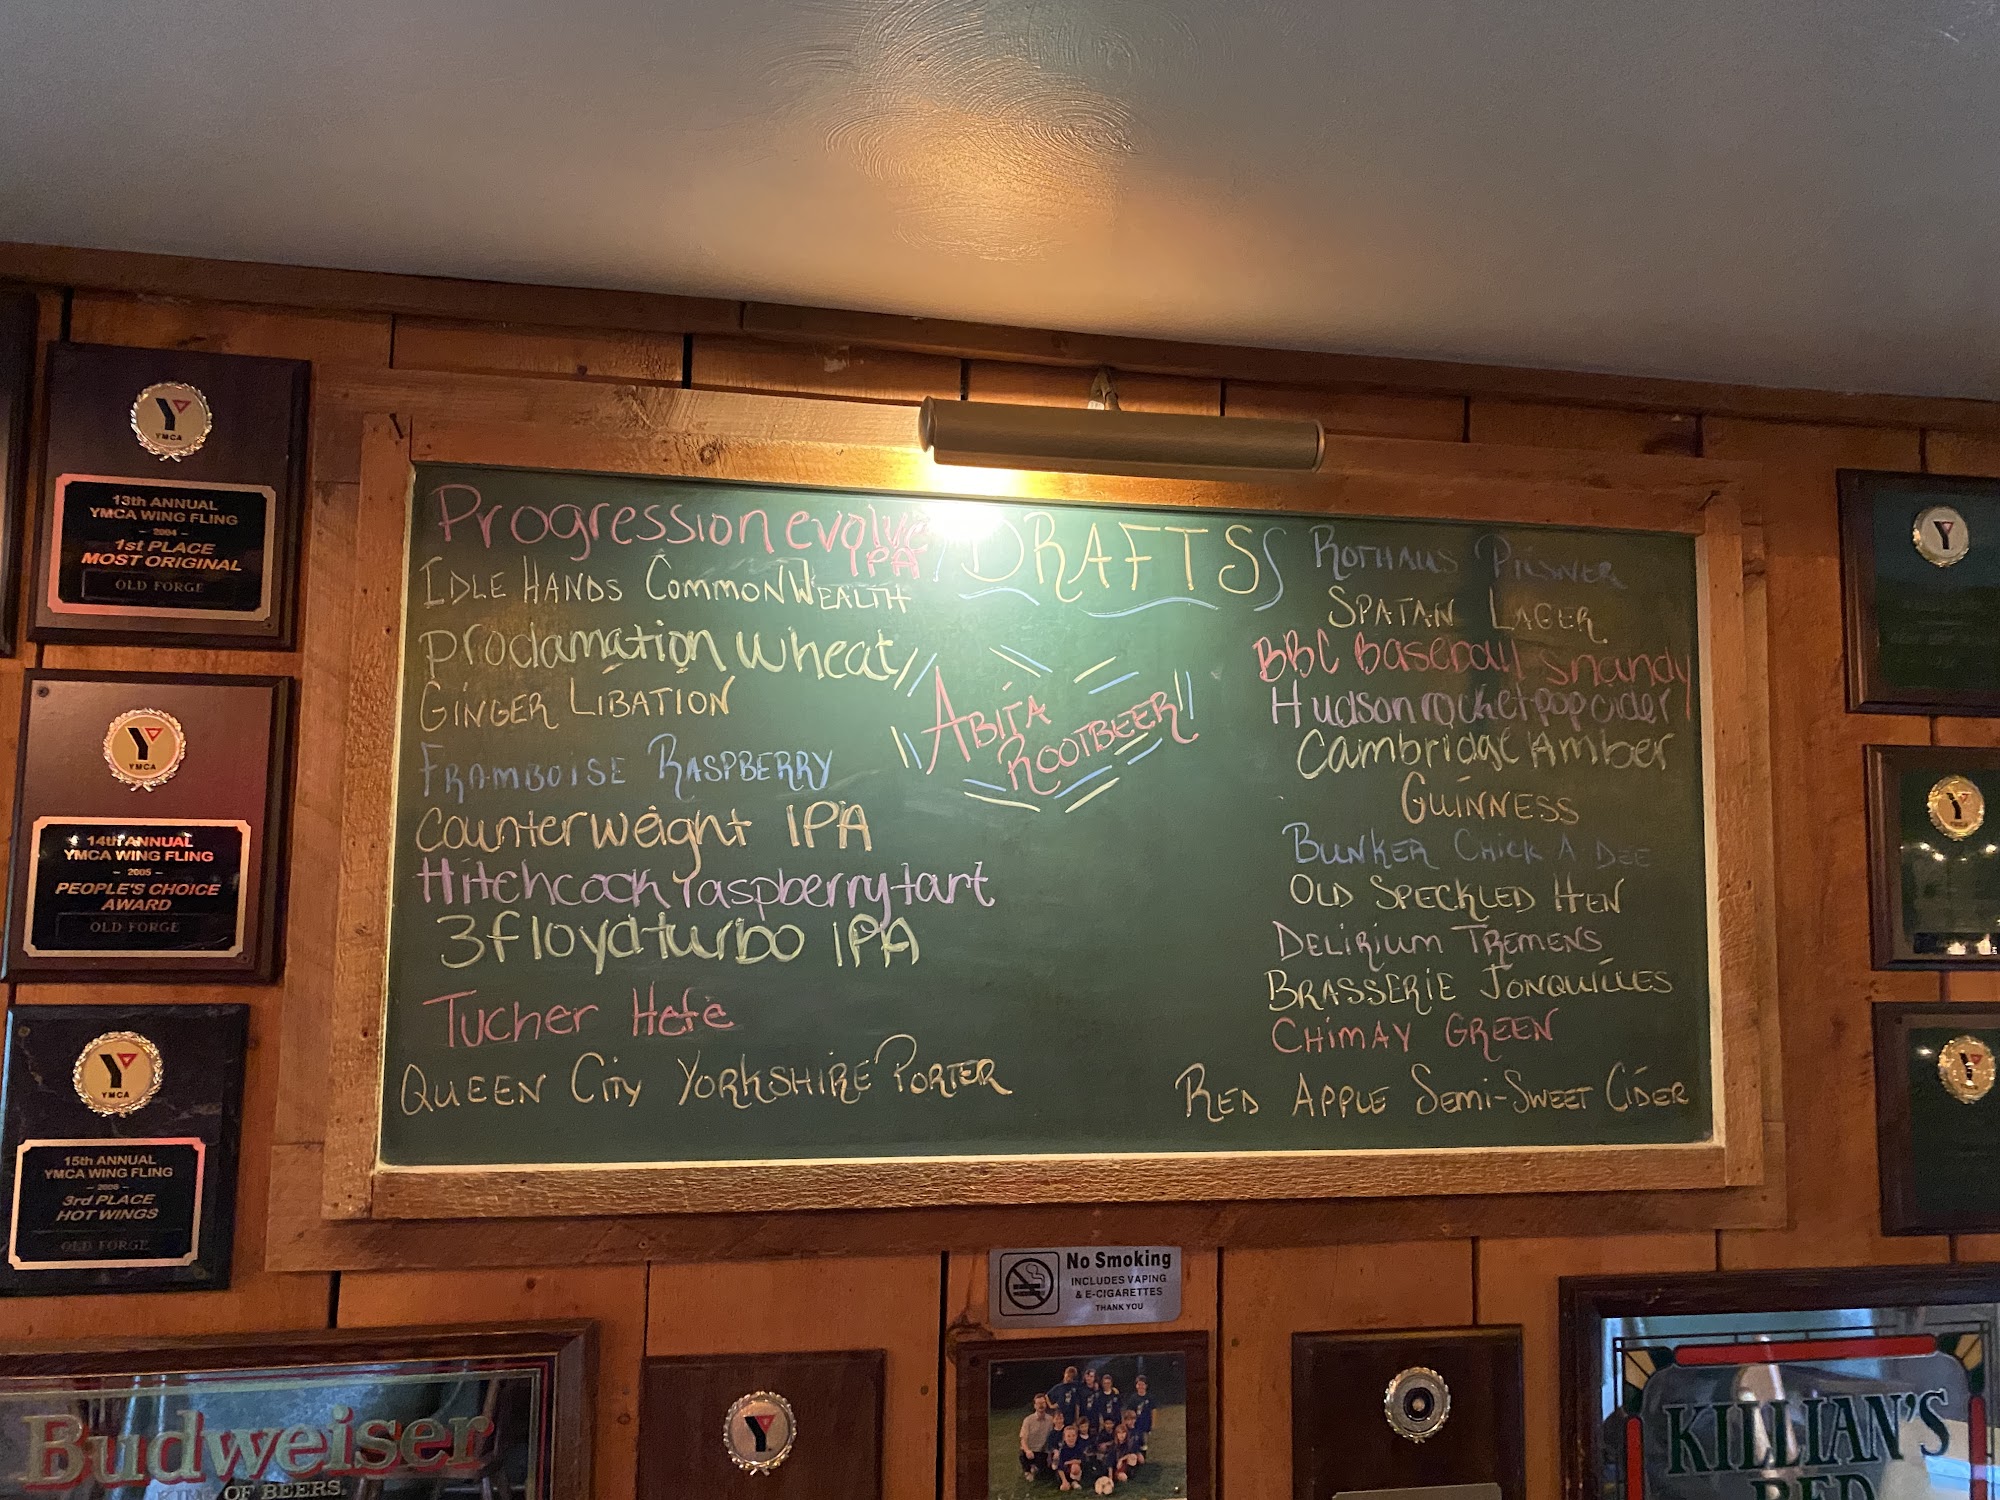 Progression evolve
IPA
IDLE HANDS COMMONWEALTH
Proclamation wheat
GINGER LIBATION
FRAMBOISE RASPBERRY
Counterweight IPA
Hitchcock raspberry tart
3floyd turbo IPA
TUCHER Hefe
QUEEN CITY YORKSHIRE PORTER
DRAFTS
ABITA
ROOTBEER
ROTHAUS PILSNER
SPATAN LAGER
BBC Baseball shandy
Hudson rocket pop cider
Cambridge Amber
GUINNESS
BUNKER CHICK A DEE
OLD SPECKLED HEN
DELIRIUM TREMENS
BRASSERIE JONQUILLES
CHIMAY GREEN
RED APPLE SEMI-SWEET CIDER
YMCA
13th ANNUAL
YMCA WING FLING
- 2004 -
1st PLACE
MOST ORIGINAL
OLD FORGE
YMCA
14th ANNUAL
YMCA WING FLING
- 2005 -
PEOPLE'S CHOICE
AWARD
OLD FORGE
YMCA
15th ANNUAL
YMCA WING FLING
- 2006 -
3rd PLACE
HOT WINGS
OLD FORGE
No Smoking
INCLUDES VAPING
& E-CIGARETTES
THANK YOU
Budweiser
KING OF BEERS.
KILLIAN'S
RED